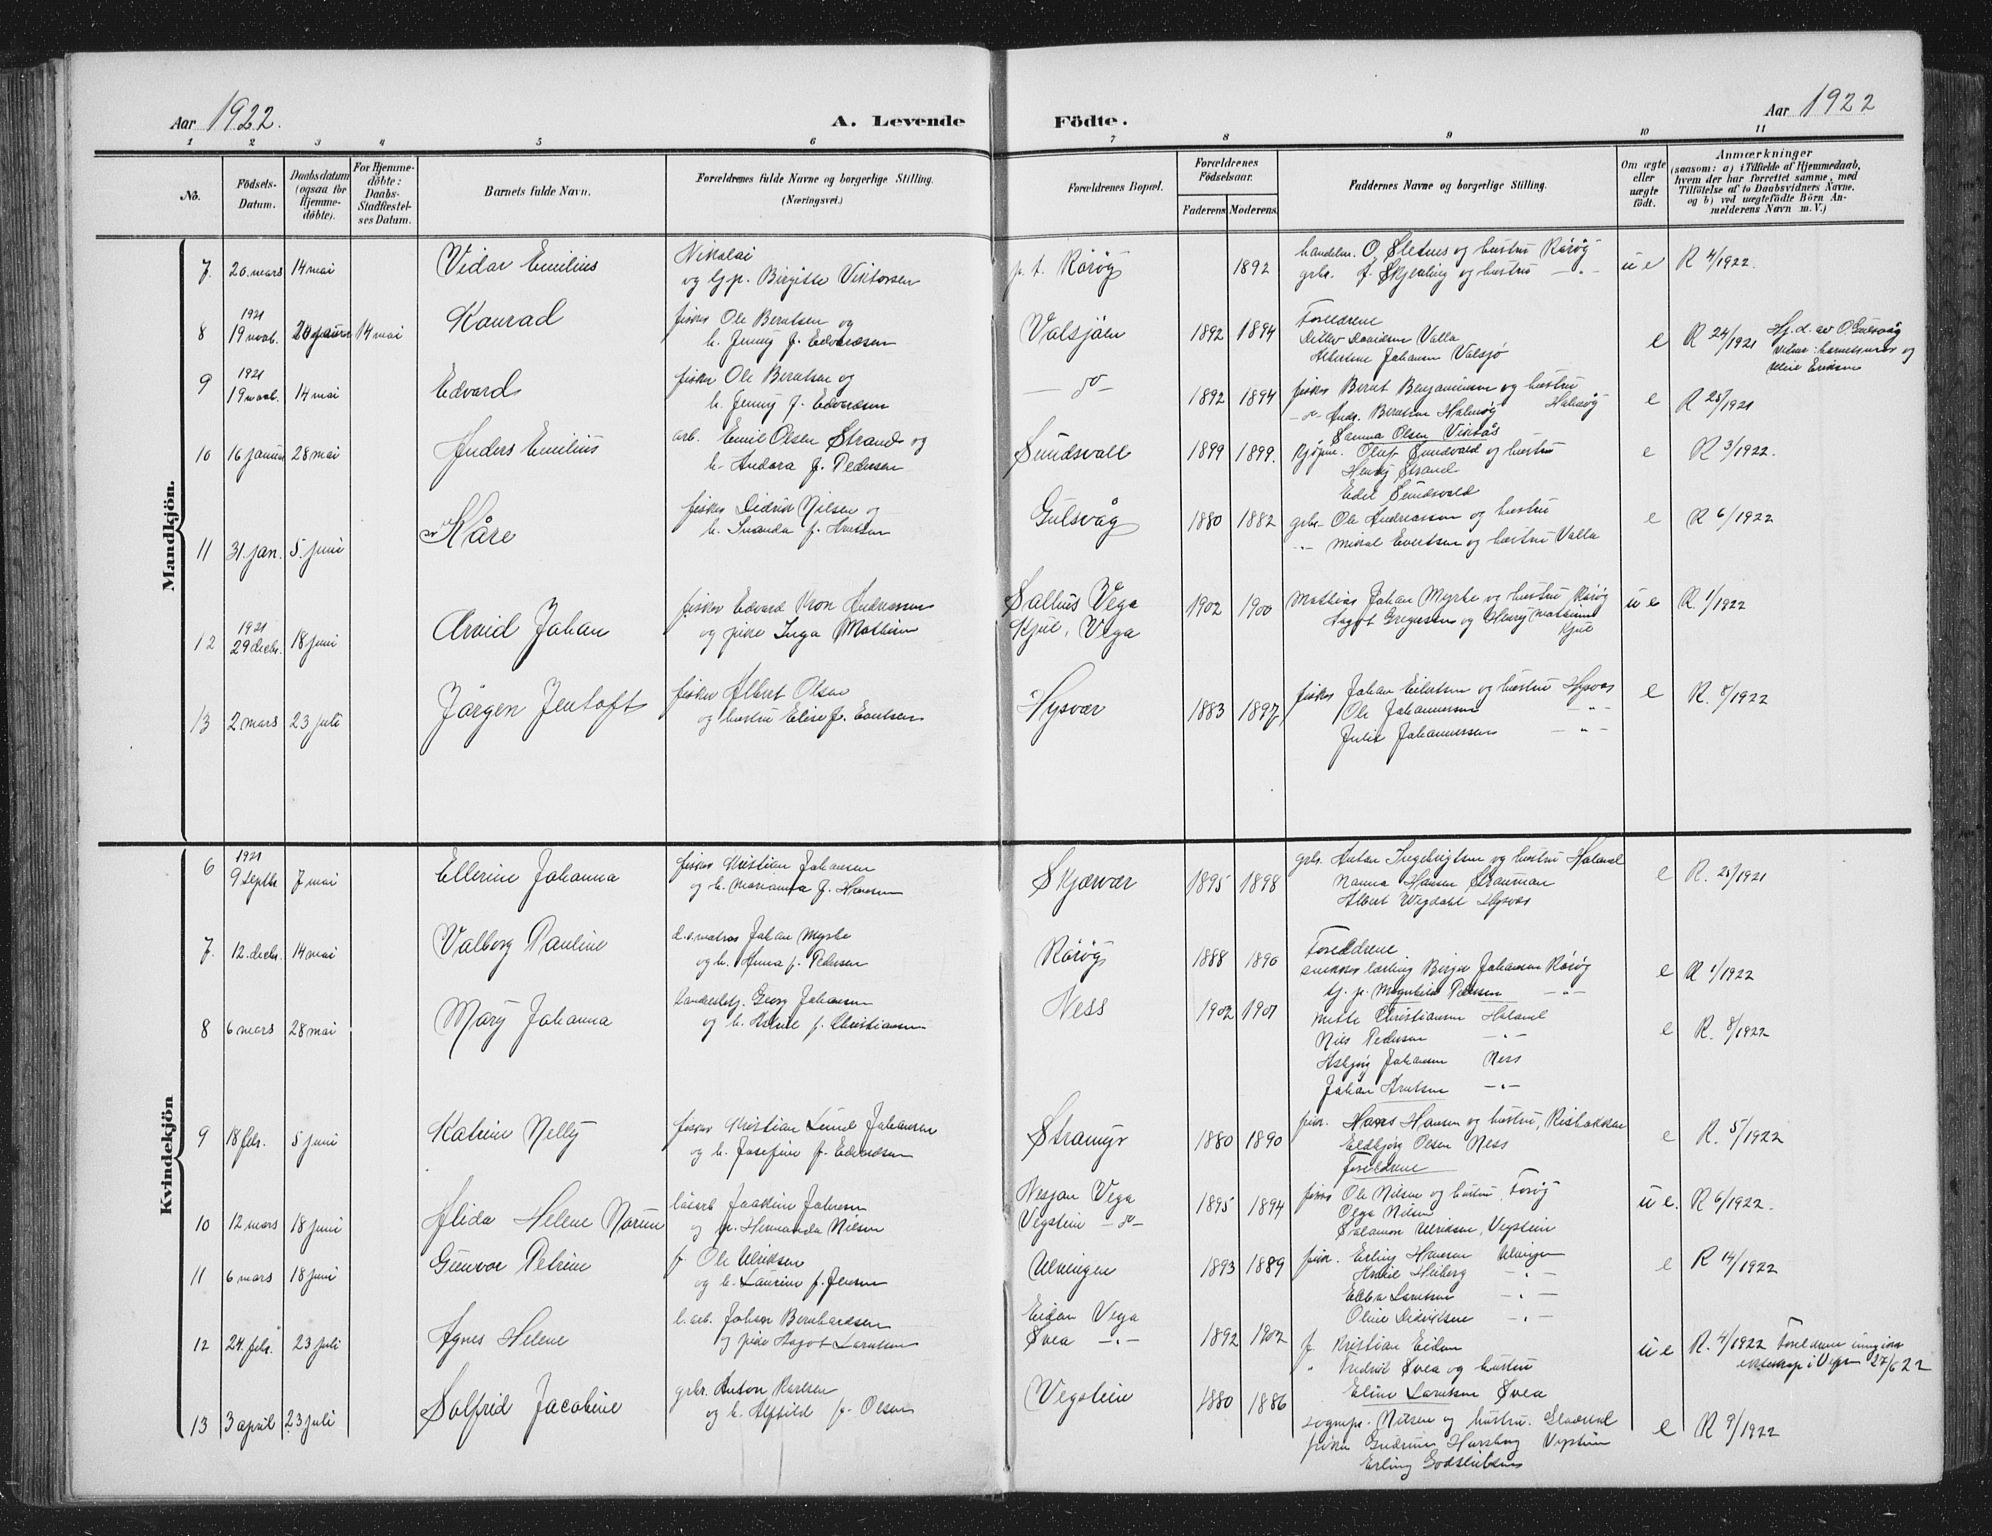 Aar 1922.
A. Levende
Födte.
Aar 1922
1 2 3 4 5 6 7 8 9 10 11
No.
Födsels-Datum.
Daabsdatum (ogsaa for Hjemme-döbte).
For Hjemme-döbte: Daabs-Stadfæstel-ses Datum.
Barnets fulde Navn.
Forældrenes fulde Navne og borgerlige Stilling. (Næringsvei.)
Forældrenes Bopæl.
Forældrenes Födselsaar.
Faderens. Moderens.
Faddernes Navne og borgerlige Stilling.
Om ægte eller uægte födt.
Anmærkninger (saasom: a) i Tilfælde af Hjemmedaab, hvem der har forrettet samme, med Tilföielse af to Daabsvidners Navne. og b) ved uægtefödte Börn An-melderens Navn m. V.)
Mandkjön.
7. 20 mars 14 mai Vidar Emilius
Nikolai
og Birgitte Viktorsen
p. t. Rörög 1892
handelsm. O. Sletnes og hustru Rörög
grbr. A. Skjerling og hustru — " —
u e R 4/1922.
8 1921 19 novb. 14 mai Konrad
fisker Ole Berntsen og
h. Jenny f. Edvardsen
Valsjöen 1892 1894
Foreldrene
Detlev Davidsen Valla
Albertine Johansen Valsjö
e R 24/1921 Hj. d. av O Gulsvåg
vidner: barnets mor og
Eriksen
9 1921 19 novb. 14 mai Edvard
fisker Ole Berntsen og
h. Jenny f. Edvardsen
— do — 1892 1894
fisker Bernt Benjaminsen og hustru
— " — Andr. Berntsen Halmög Halmög
Samma Olsen Viktås
e R 25/1921
10 16 januar 28 mai Anders Emilius
arb. Emil Olsen Strand og
h. Andora f. Pedersen
Sundsvoll 1899 1899.
kjöpm. Oluf Sundsvold og hustru
Henry Strand
Edel Sundsvold
e R 3/1922.
11 31. jan. 5. juni Kåre
fisker Didrik Nilsen og
h. Inanda f. Arntsen
Gulsvåg 1880 1882
grbr. Ole Andreassen og hustru
— " — Mikal Evertsen og hustru Valla
e R 6/1922
12 1921 29 decbr. 18 juni Arvid Johan
fisker Edvard Kron Andreassen
og pike Inga Mathisen
Sallius Vega
Kjul, Vega
1902 1900
Mathias Johan Myrbe og hustru Rörög
Hagbt Gregersen og Henry Mathisen
Kjul
u e R. 1/1922
13 2 mars 23 juli Jörgen Jentoft
fisker Albert Olsen
og hustru Elise f.
Hysvær 1883 1897
fisker Johan Eilertsen og hustru Hysvær
Ole Johannessen — " —
Julie Johannessen — " —
e R. 8/1922
Kvindekjön
6 1921 9 septbr. 7 mai Ellerine Johanna
fisker Kristian Johansen
og h. Marianna f. Hansen
Skjærvær 1895 1898
grbr. Anton Ingebrigtsen og hustru Holand
Nanna Hansen Strauman
Albert Wegdahl Hysvær
e R. 25/1921
7. 12. decbr. 14 mai Valborg Pauline
d.s. matros Johan Myrbe
og h. Anna f. Pedersen
Rörög 1888 1890
Foreldrene
snekkerlærling Birger Johansen Rörög
tj. p. Magnhild Pedersen — " —
e R 1/1922
8 6 mars 28 mai Mary Johanna
handelsbtj. Georg Johansen
og h. Astrid f. Christiansen
Ness 1902 1901
Mette Christiansen Holand
Nils Pedersen — " —
Asbjörg Johansen Ness
Johan Arntsen — " —
e R. 8/1922
9 18 febr. 5 juni Katrine Nelly
fisker Kristian Lund Johansen
og h. Josefine f. Edvardsen
Stramyr 1880 1890
fisk. Hans Hansen og hustru, Risbakken
Eldbjörg Olsen Ness
Foreldrene
e R. 5/1922
10 12 mars 18 juni Alida Helene Norum
lösarb Joakim Johnsen
og p. Hermanda Nilsen
Nesjan Vega
Vegstein — do —
1895 1894
fisker Ole Nilsen og hustru, Forög
Olga Nilsen
Salamon Ulriksen, Vegstein
u e. R 6/1922.
11 6 mars 18 juni Gunvor Petrine
f. Ole Ulriksen
og h. Laurine f. Jensen
Ulvingen 1893 1889
fisk. Erling Hansen Ulvingen
Heiberg — " —
Ebba Larntsen — " —
Oline Didriksen — " —
e R 14/1922
12 24. febr. 23 juli Agnes Helene
l. arb. Johan Bernhardsen
og pike Hagbt Larntsen
Eidan Vega
Övea — " —
1892 1902
f. Kristian Eiden
" Fredrik Övea og hustru
Eline Larntsen Övea
u e R. 4/1922 Foreldrene inngikk
ekteskap i Vega 27/6 22
13 3 april 23 juli Solfrid Jacobine
grbr. Anton Karlsen
og h. Alfhild f. Olsen
Vegstein 1880 1886
sognepr. Nilsen og hustru. Gladstad
fröken Gudrun Horsberg Vegstein
Erling Godtliebsen
e R 9/1922